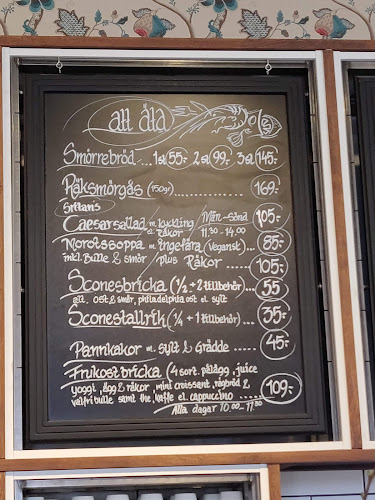 att äta
Smörrebröd....1st 55:- 2st 99:- 3st 145:-
Räksmörgås (150gr)............169:-
Caesarsallad m. kyckling Mån-Sönd 105:-
el. Räkor 11.30-14.00
Morotssoppa m. ingefära (Vegansk)... 85:-
inkl. Bulle & smör / plus Räkor ...... 105:-
Sconesbricka (1/2 + 2 tillbehör)... 55
ost & smör, philadelphiaost el. sylt
Sconestallrik (1/4 + 1 tillbehör)... 35:-
Pannkakor m. sylt & Grädde ...... 45:-
Frukostbricka (4 sort. pålägg, juice
yoggi, ägg & räkor, mini croissant, rågbröd &
valfri bulle samt the, kaffe el. cappuccino ......... 109:-
Alla dagar 10.00-11.30